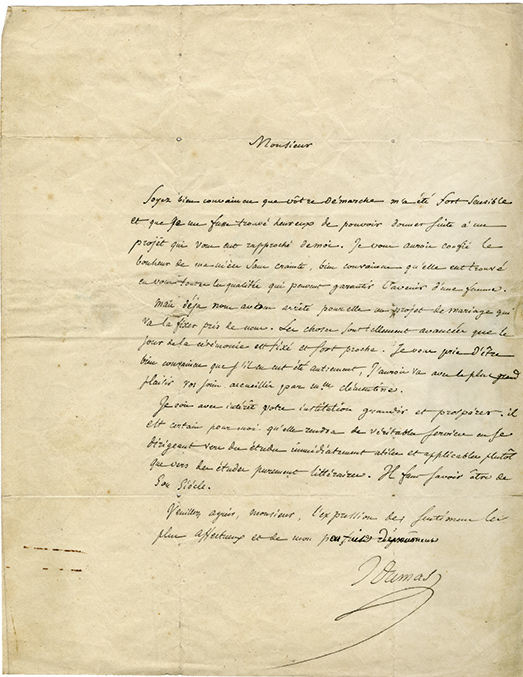 Monsieur
Soyez bien convaincu que vôtre démarche m'a été fort sensible
et que je me fusse trouvé heureux de pouvoir donner suite à un
projet qui vous eut rapproché de moi. Je vous aurois confié le
bonheur de ma nièce sans crainte, bien convaincu qu'elle eut trouvé
en vous toutes les qualités qui peuvent garantir l'avenir d'une femme.
Mais déja nous avions arrêté pour elle un projet de mariage qui
va la fixer près de nous. Les choses sont tellement avancées que le
jour de la cérémonie est fixé et fort proche. Je vous prie d'être
bien convaincu que s'il en eut été autrement, j'aurois vu avec le plus grand
plaisir vos soins accueillis par Mlle clémentine.
Je vois avec intérêt votre institution grandir et prospérer. il
est certain pour moi qu'elle rendra de véritables services en se
dirigeant vers des études immédiatement utiles et applicables plutôt
que vers des études purement littéraires. Il faut savoir être de
son siècle.
Veuillez agréer, monsieur, l'expression des sentimens les
plus affectueux et de mon dévouement
Dumas